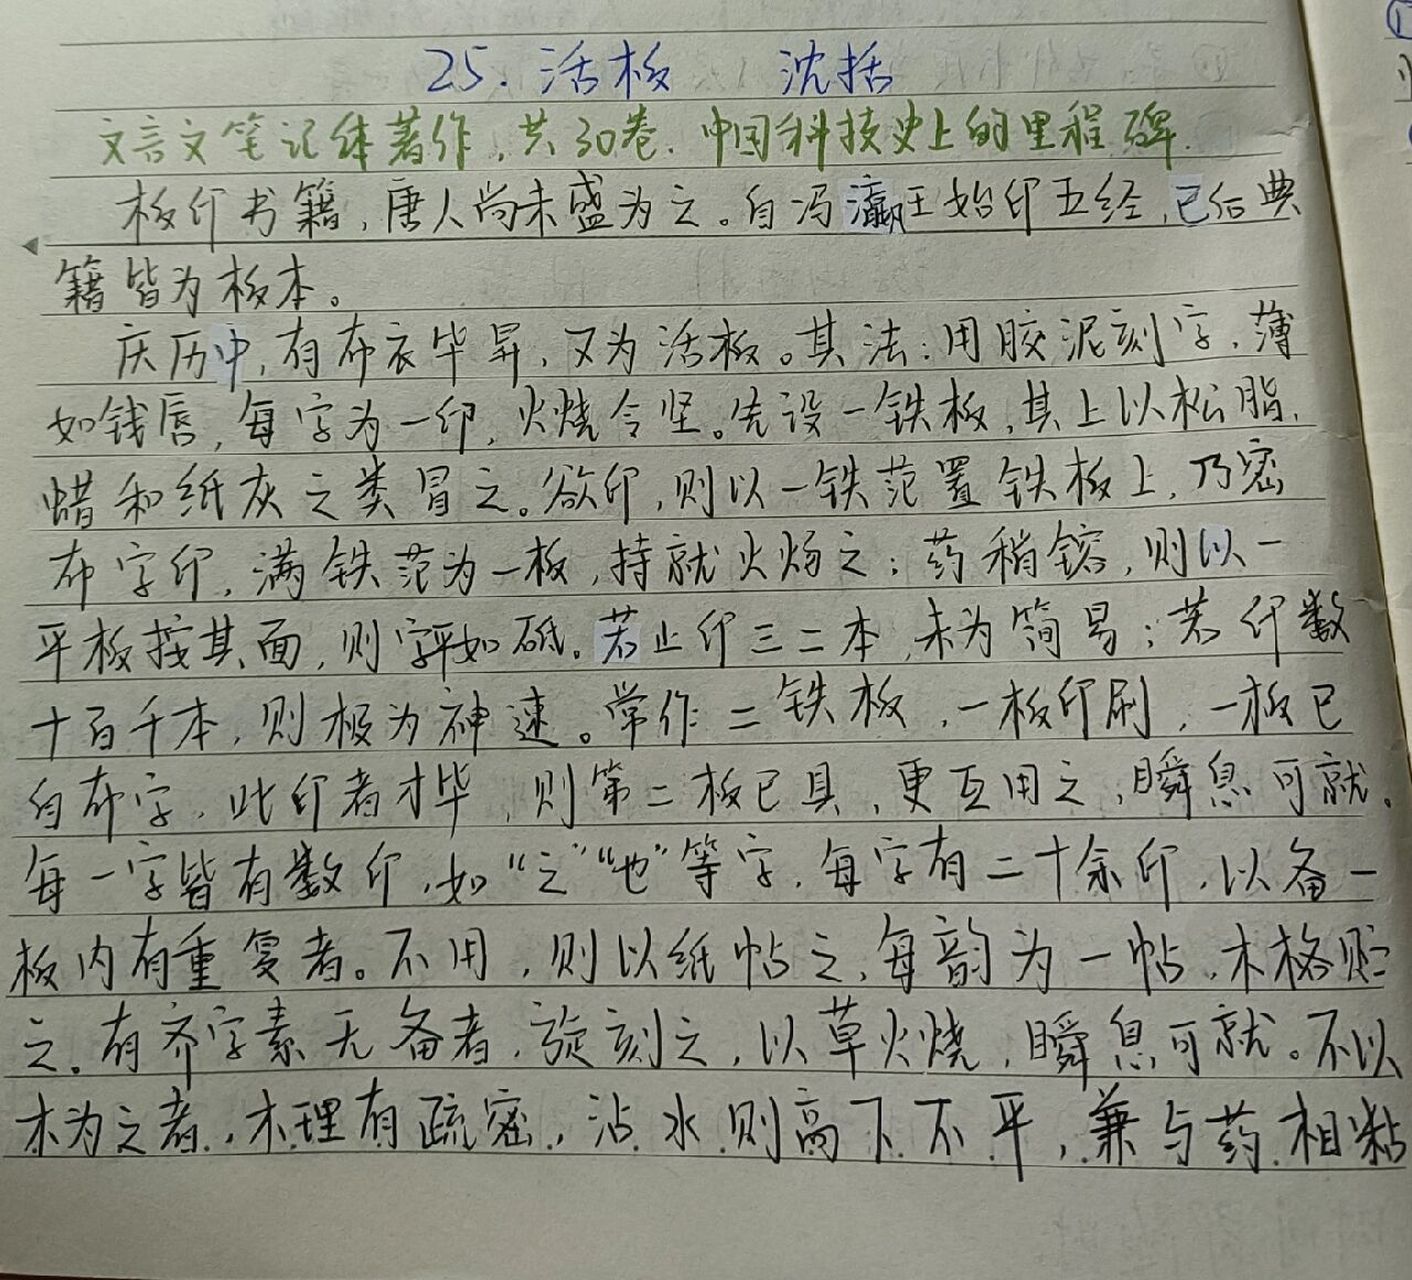 25. 活板 沈括
文言文笔记体著作，共30卷．中国科技史上的里程碑．
板印书籍，唐人尚未盛为之。自冯瀛王始印五经，已后典
籍皆为板本。
庆历中，有布衣毕昇，又为活板。其法：用胶泥刻字，薄
如钱唇，每字为一印，火烧令坚。先设一铁板，其上以松脂、
蜡和纸灰之类冒之。欲印，则以一铁范置铁板上，乃密
布字印，满铁范为一板，持就火炀之；药稍镕，则以一
平板按其面，则字平如砥。若止印三二本，未为简易；若印数
十百千本，则极为神速。常作二铁板，一板印刷，一板已
自布字，此印者才毕，则第二板已具，更互用之，瞬息可就。
每一字皆有数印，如“之”“也”等字，每字有二十余印，以备一
板内有重复者。不用，则以纸帖之，每韵为一帖，木格贮
之。有奇字素无备者，旋刻之，以草火烧，瞬息可就。不以
木为之者，木理有疏密，沾水则高下不平，兼与药相粘